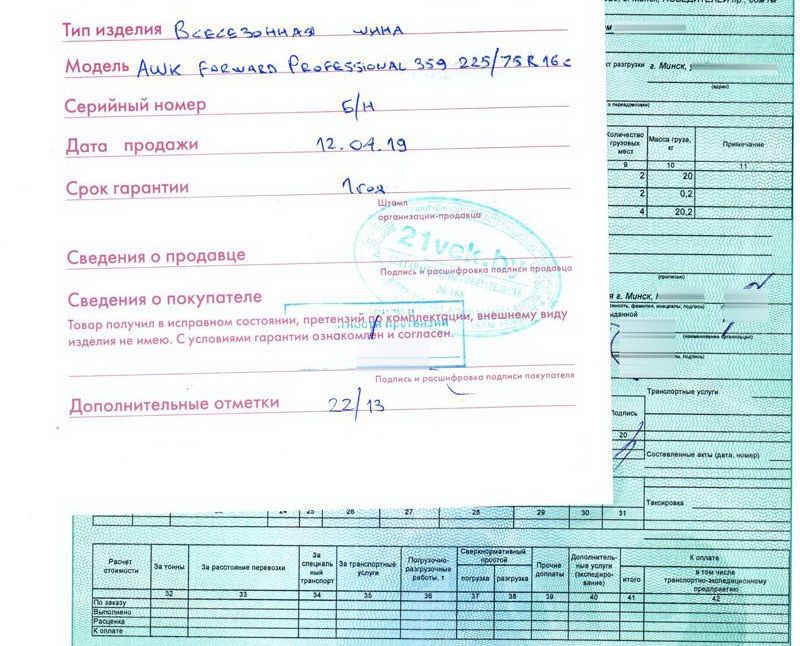 Тип изделия Всесезонная шина
Модель AWK FORWARD PROFESSIONAL 359 225/75R16c
Серийный номер Б/Н
Дата продажи 12.04.19
Срок гарантии 1 год
Штамп
организации-продавца
21vek.by
Сведения о продавце
Подпись и расшифровка подписи продавца
Сведения о покупателе
Товар получил в исправном состоянии, претензий по комплектации, внешнему виду
изделия не имею. С условиями гарантии ознакомлен и согласен.
Подпись и расшифровка подписи покупателя
Дополнительные отметки 22/13
г. Минск,
(адрес)
Количество грузовых мест
Масса груза, кг
Примечание
9 10 11
2 20
2 0,2
4 20,2
(прописью)
г. Минск,
Транспортные услуги
20
Составленные акты (дата, номер)
Таксировка
26 27 28 29 30 31
Расчет стоимости
За тонны
За расстояние перевозки
За специальный транспорт
За транспортные услуги
Погрузочно-разгрузочные работы, т
Сверхнормативный простой
погрузка
разгрузка
Прочие доплаты
Дополнительные услуги (экспедирование)
К оплате
итого
в том числе транспортно-экспедиционному предприятию
32 33 34 35 36 37 38 39 40 41 42
По заказу
Выполнено
Расценка
К оплате